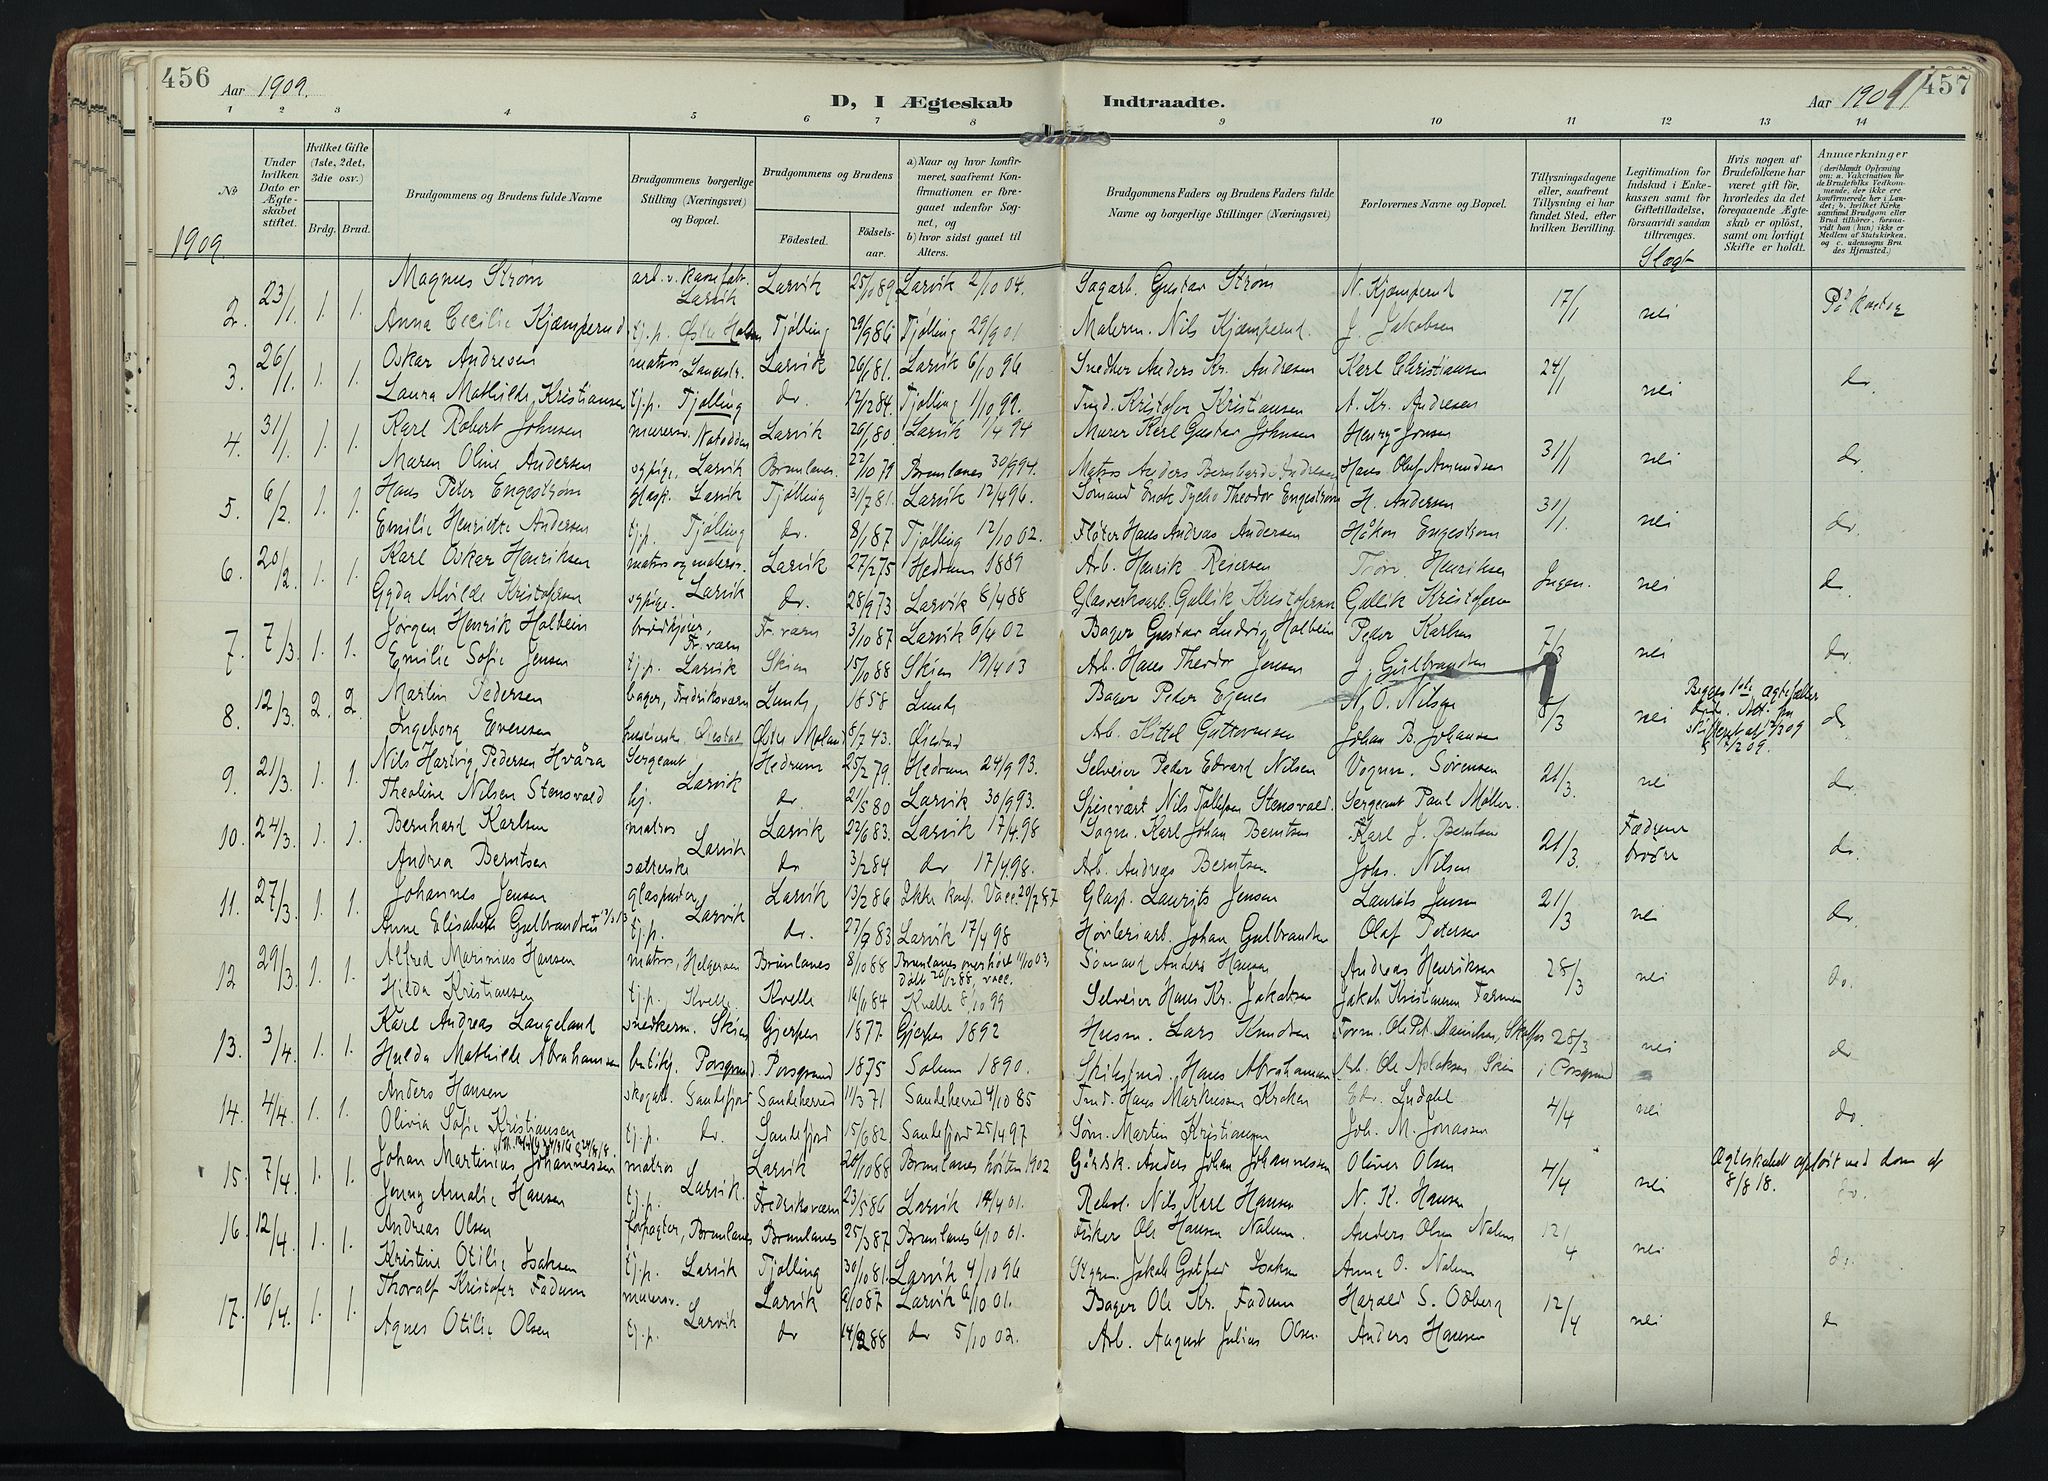 456 Aar 1909.
D, I Ægteskab Indtraadte.
Aar 1909 457
1 2 3 4 5 6 7 8 9 10 11 12 13 14
No
Under hvilken Dato er Ægteskabet stiftet.
Hvilket Gifte (1ste, 2det, 3die osv.)
Brdg. Brud.
Brudgommens og Brudens fulde Navne
Brudgommens borgerlige Stilling (Næringsvei) og Bopæl.
Brudgommens og Brudens
Födested. Födselsaar.
a) Naar og hvor konfirmeret, saafremt Konfirmationen er foregaaet udenfor Sognet, og
b) hvor sidst gaaet til Alters.
Brudgommens Faders og Brudens Faders fulde Navne og borgerlige Stillinger (Næringsvei)
Forlovernes Navne og Bopæl.
Tillysningsdagene eller, saafremt Tillysning ei har fundet Sted, efter hvilken Bevilling.
Legitimation for Indskud i Enkekassen samt for Giftetilladelse, forsaavidt saadan tiltrænges.
Hvis nogen af Brudefolkene har været gift för, hvorledes da det foregaaende Ægteskab er oplöst, samt om lovligt Skifte er holdt.
Anmærkninger (deriblandt Oplysning om: a. Vakcination för de Brudefolks Vedkommende, der ikke ere konfirmerede her i Landet; b. hvilket Kirkesamfund Brudgom eller Brud tilhörer, forsaavidt han (hun) ikke er Medlem af Statskirken, og c. udensogns Brudes Hjemsted.)
1909
Slægt
2. 23/1. 1. 1. Magnus Strøm arb. v. Larvik Larvik 25/10 89 Larvik 2/10 04. Sagarb. Gustav Strøm N. Kjæmperud 17/1 nei På kontor
Anna Cecilie Kjæmperud tj.p. Østre Halsen Tjølling 29/9 86 Tjølling 29/9 01 Malerm. Nils Kjæmperud. J. Jakobsen
3. 26/1. 1. 1. Oskar Andresen matros, Langestr. Larvik 26/1 81. Larvik 6/10 96 Snedker Anders Kr. Andresen Karl Christiansen 24/1 nei do.
Laura Mathilde Kristiansen tj.p. Tjølling do. 12/12 84. Tjølling 1/10 99. Kristofer Kristiansen A. Kr. Andresen
4. 31/1. 1. 1. Karl Robert Johnsen murersv. Notodden Larvik 26/1 80. Larvik 1/4 94 Murer Karl Gustav Johnsen Henry Jonsen 31/1 nei do.
Maren Oline Andersen sypige, Larvik Brunlanes. 22/10 79 Brunlanes 30/9 94. Matros Anders Bernhard Andresen Hans Olaf Amundsen
5. 6/2. 1. 1. Hans Peter Engestrøm glasp. Larvik Tjølling 31/7 81. Larvik 12/4 96. Sømand Enok Tycho Theodor Engestrøm H. Andersen 31/1. nei do.
Emilie Henriette Andersen tj.p. Tjølling do. 8/1 87 Tjølling 12/10 02. Fløter Hans Andreas Andersen Håkon Engestrøm
6. 20/2. 1. 1. Karl Oskar Henriksen matros og malersv. Larvik 27/2 75 Hedrum 1889 Arb. Henrik Reiersen Henriksen Ingen. nei do
Gyda Alvilde Kristofersen sypige. Larvik do. 28/9 73 Larvik 8/4 88 Glasverksarb. Gullik Kristofersen Gullik Kristofersen
7. 7/3. 1. 1. Jørgen Henrik Holbein brødkjører, Fr.værn Fr.værn 3/10 87 Larvik 6/4 02 Bager Gustav Ludvig Holbein Peder Karlsen 7/3 nei do.
Emilie Sofie Jensen tj.p. Larvik Skien 15/10 88 Skien 19/4 03 Arb. Hans Theodor Jensen J. Gulbrandsen
8. 12/3. 2. 2. Martin Pedersen bager, Fredriksværn Lunde, 1858 Lunde Bager Peder Ejenes N. O. Nilsen 8/3 nei Begges 1ste ægtefæller døde. do
Ingeborg Evensen Øiestad Østre Moland 5/7 43. Øiestad Arb. Kittel Guttormsen Johan B. Johansen
9. 21/3. 1. 1. Nils Hartvig Pedersen Hvåra Sergeant Larvik Hedrum 25/2 79 Hedrum 24/9 93. Selveier Peder Edvard Nilsen Vognm. Sørensen 21/3. nei do.
Theoline Nilsen Stensvald hj. do. 21/5 80 Larvik 30/9 93. Spisevært Nils Tollefsen Stensvald. Sergeant Paul Møller.
10. 24/3. 1. 1. Bernhard Karlsen matros Larvik Larvik 22/6 83. Larvik 17/4 98 Sagm. Karl Johan Berntsen Karl J. Berntsen 21/3. Fædrene brødre do.
Andrea Berntsen do 3/2 84 do 17/4 98. Arb. Andreas Berntsen Johs. Nilsen
11. 27/3. 1. 1. Johannes Jensen glaspuster Larvik Larvik 13/2 86 Ikke konf. Vacc. 20/7 87 Glasp. Laurits Jensen Laurits Jensen 21/3 nei do.
Anne Elisabeth Gulbrandsen tj.p. do. 27/9 83 Larvik 17/4 98 Høvleriarb. Johan Gulbrandsen Olaf Petersen
12 29/3. 1. 1. Alfred Marinius Hansen matros, Helgeroen Brunlanes 8/10 88 Brunlanes overhørt 11/10 03, Døbt 26/12 88, vacc. Sømand Anders Hansen Andreas Henriksen 28/3 nei do.
Hilda Kristiansen tj.p. Kvelle Kvelle 16/1 84 Kvelle 8/10 99 Selveier Hans Kr. Jakobsen Jakob Kristiansen Farmen
13. 3/4. 1. 1. Karl Andreas Langeland snedkerm. Skien Gjerpen 1877 Gjerpen 1892 Husm. Lars Knudsen Form. Ole Pet. Danielsen, 28/3 nei do
Hulda Mathilde Abrahamsen butikj. Porsgrund. Porsgrund 1875 Solum 1890. Skibstmd. Hans Abrahamsen Arb. Ole Aslaksen Skien i Porsgrund
14. 4/4. 1. 1. Anders Hansen skogarb. Sandefjord Sandeherred 11/3 71 Sandeherred 4/10 85 Hans Markussen Krokan Edv. Lindahl 4/4 nei do.
Olivia Sofie Kristiansen tj.p. do. Sandefjord 15/6 82 Sandefjord 25/4 97 Søm. Martin Kristiansen Joh. M. Jonassen
15. 7/4. 1. 1. Johan Martinius Johannessen matros Larvik. Larvik 20/10 88 Brunlanes høsten 1902 Gårdsk. Anders Johan Johannessen Oliver Olsen 4/4 nei Ægteskabet opløst ved dom af 8/8 18. do.
Jenny Amalie Hansen tj.p. Fredriksværn 23/5 86 Larvik 14/4 01. Nils Karl Hansen N. K. Hansen
16. 12/4. 1. 1. Andreas Olsen forpagter, Brunlanes Brunlanes 25/3 87 Brunlanes 6/10 01. Fisker Ole Hansen Nalum. Anders Olsen Nalum 12/4 nei do.
Kristine Otilie Isaksen tj.p. Larvik Tjølling 30/10 81. Larvik 4/10 96 Styrm. Jakob Gotfred Isaksen Anna O. Nalum
17. 16/4. 1. 1. Thoralf Kristofer Fadum murersv. Larvik Larvik 9/10 87 Larvik 6/10 01. Bager Ole Kr. Fadum Harald S. Odberg 12/4 nei do
Agnes Otilie Olsen tj.p. do 14/2 88 do 5/10 02. Arb. August Julius Olsen. Anders Hansen